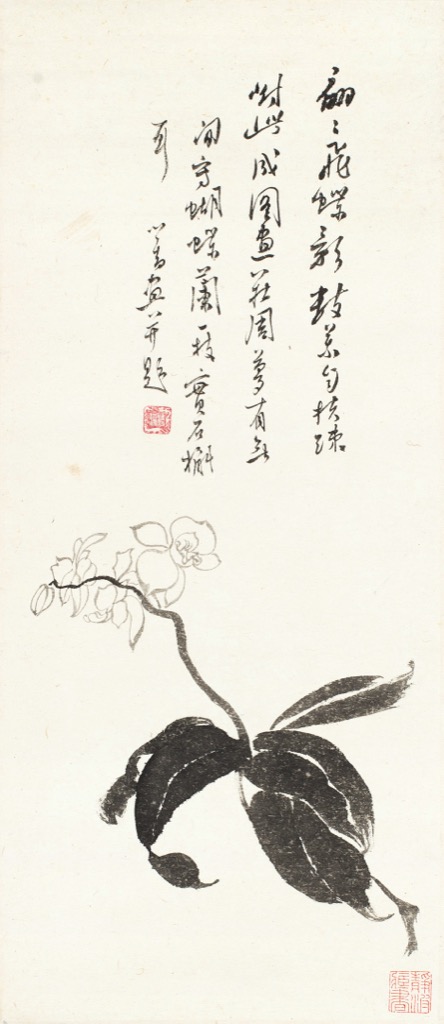 翩〻飛蝶影數葉自扶疎
對此成圖畫莊周夢有無
閒寫蝴蝶蘭一枝實石斛
耳 心畬畫并題